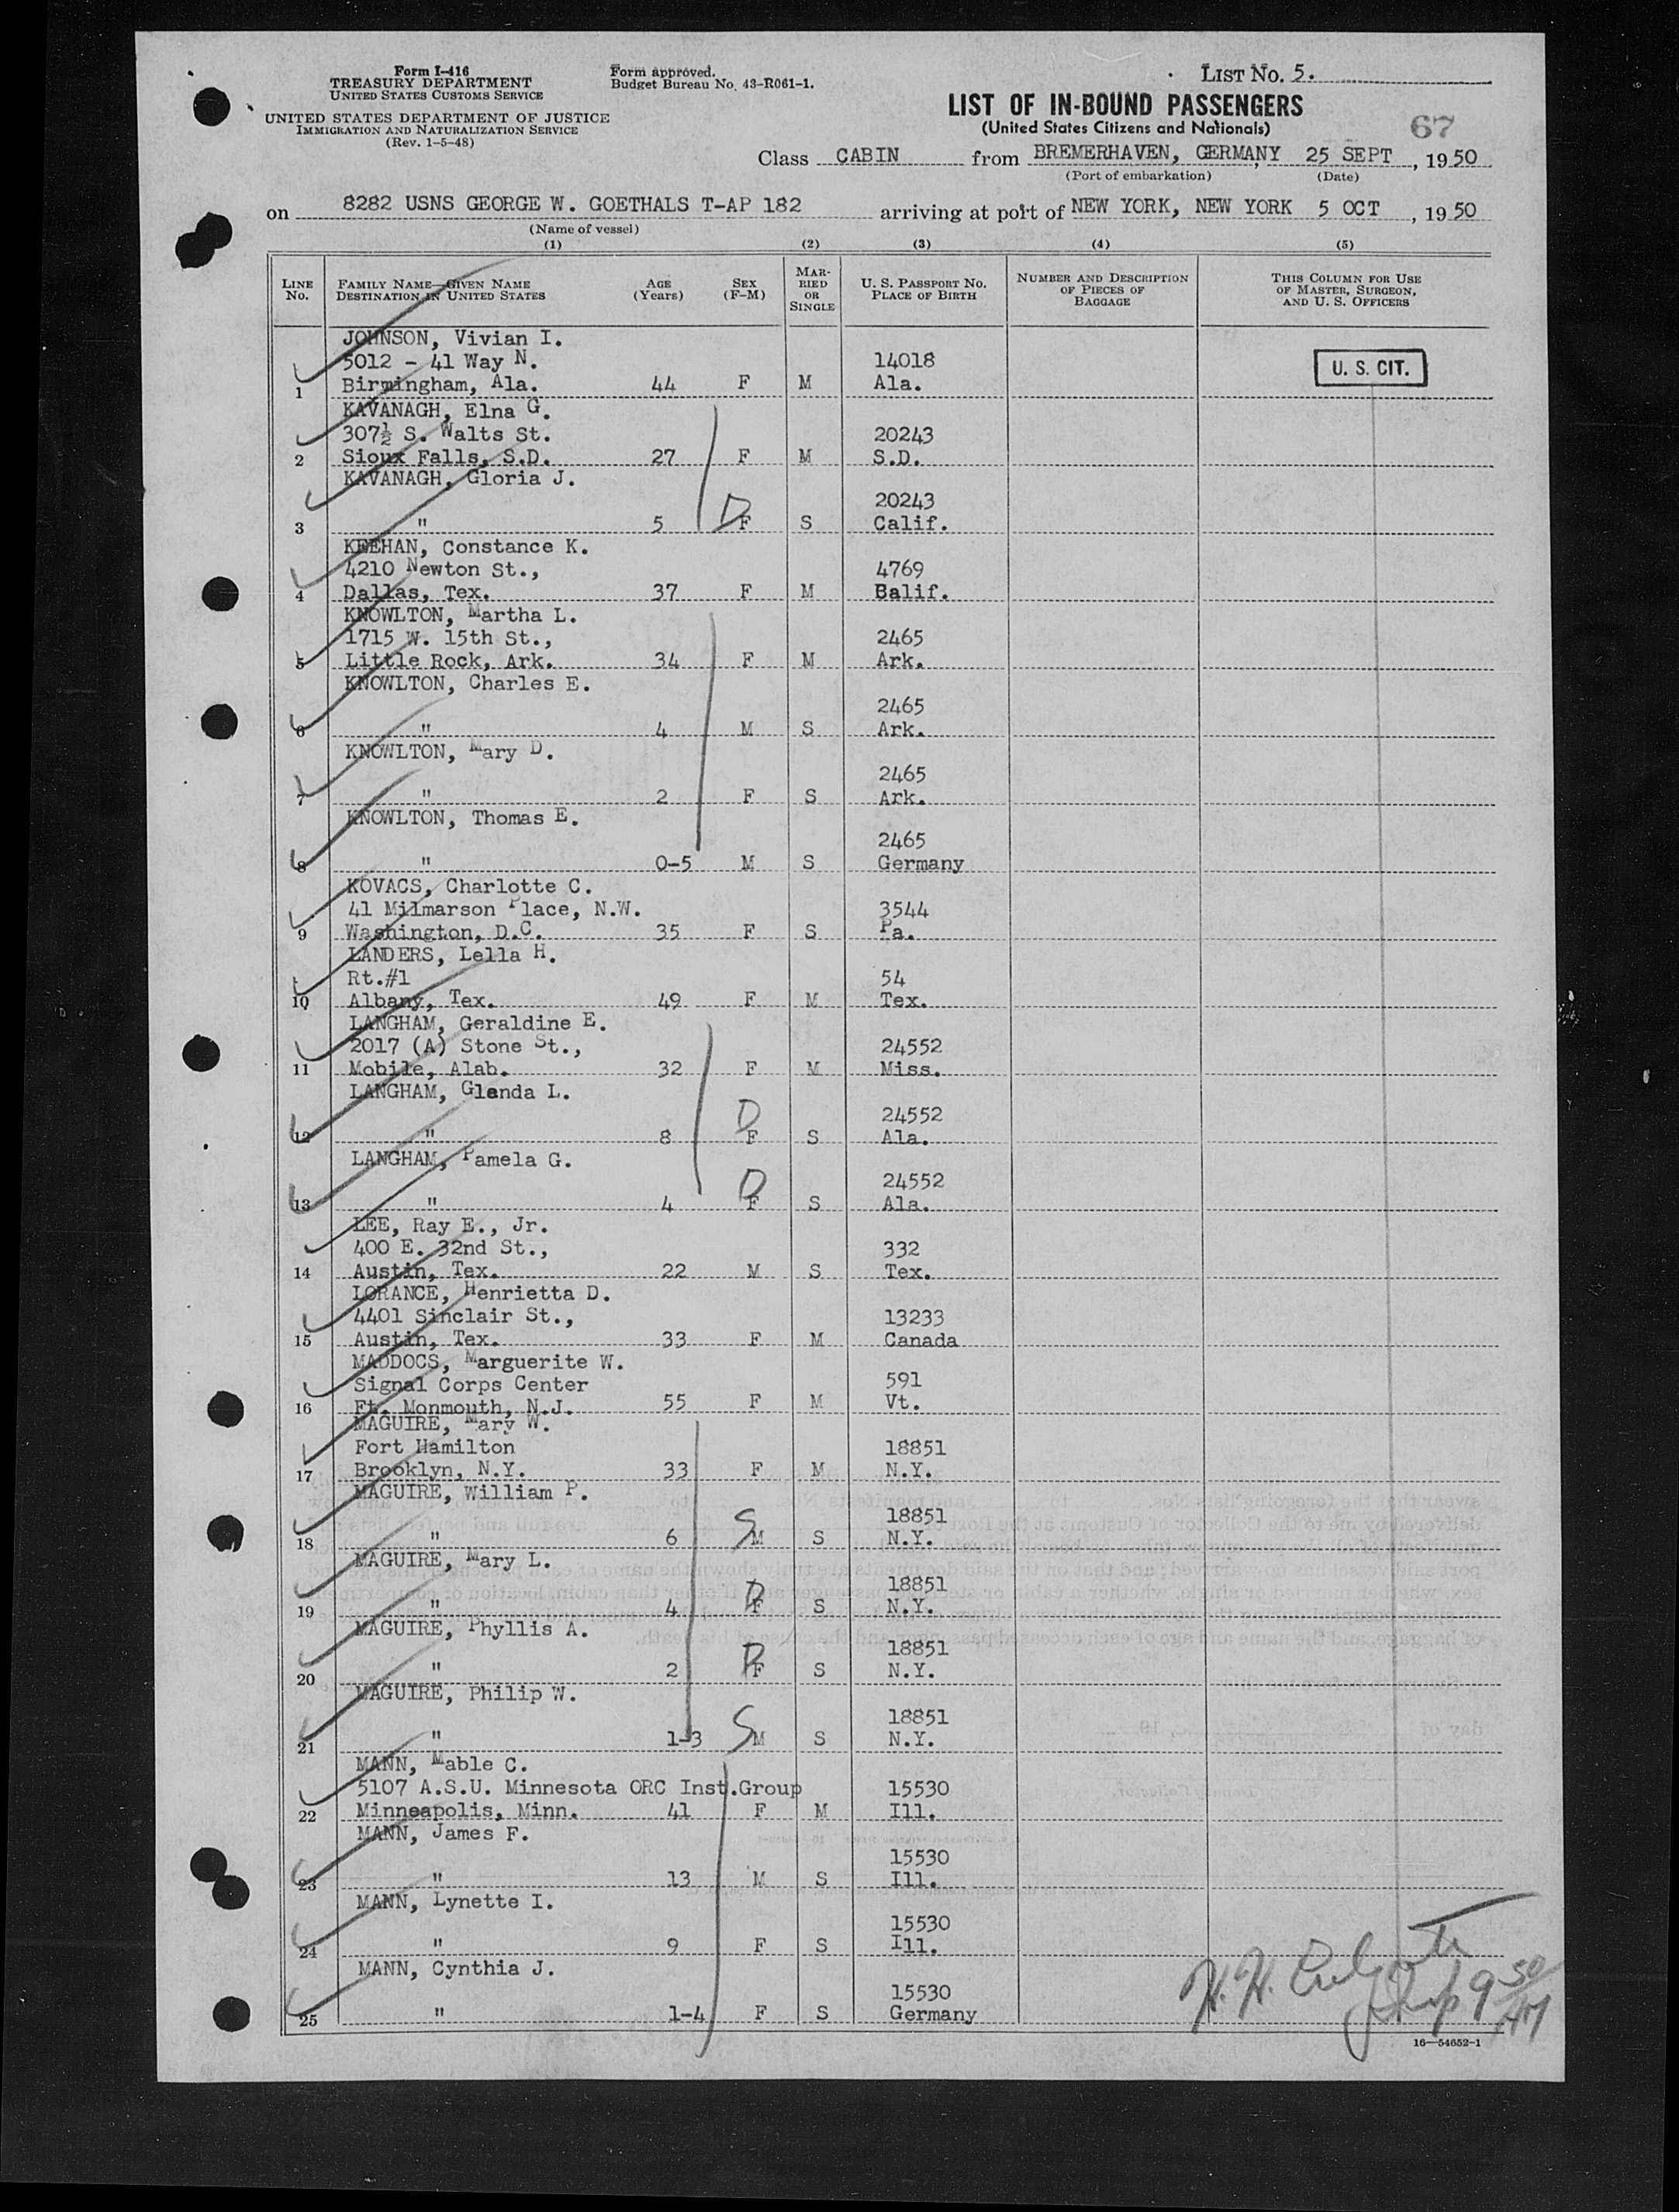 Form I-416
TREASURY DEPARTMENT
UNITED STATES CUSTOMS SERVICE
UNITED STATES DEPARTMENT OF JUSTICE
IMMIGRATION AND NATURALIZATION SERVICE
(Rev. 1-5-48)
Form approved.
Budget Bureau No. 43-R061-1.
LIST No. 5.
LIST OF IN-BOUND PASSENGERS
(United States Citizens and Nationals)
67
Class CABIN from BREMERHAVEN, GERMANY 25 SEPT, 1950
(Port of embarkation) (Date)
on 8282 USNS GEORGE W. GOETHALS T-AP 182 arriving at port of NEW YORK, NEW YORK 5 OCT, 1950
(Name of vessel)
(1) (2) (3) (4) (5)
LINE No. FAMILY NAME—GIVEN NAME DESTINATION IN UNITED STATES AGE (Years) SEX (F-M) MARRIED OR SINGLE U. S. PASSPORT No. PLACE OF BIRTH NUMBER AND DESCRIPTION OF PIECES OF BAGGAGE THIS COLUMN FOR USE OF MASTER, SURGEON, AND U. S. OFFICERS
JOHNSON, Vivian I.
5012 - 41 Way N. 14018 U. S. CIT.
1 Birmingham, Ala. 44 F M Ala.
KAVANAGH, Elna G.
307½ S. Walts St. 20243
2 Sioux Falls, S.D. 27 F M S.D.
KAVANAGH, Gloria J.
20243
3 " 5 D F S Calif.
KEEHAN, Constance K.
4210 Newton St., 4769
4 Dallas, Tex. 37 F M Balif.
KNOWLTON, Martha L.
1715 W. 15th St., 2465
5 Little Rock, Ark. 34 F M Ark.
KNOWLTON, Charles E.
2465
6 " 4 M S Ark.
KNOWLTON, Mary D.
2465
7 " 2 F S Ark.
KNOWLTON, Thomas E.
2465
8 " 0-5 M S Germany
KOVACS, Charlotte C.
41 Milmarson Place, N.W. 3544
9 Washington, D.C. 35 F S Pa.
LANDERS, Lella H.
Rt.#1 54
10 Albany, Tex. 49 F M Tex.
LANGHAM, Geraldine E.
2017 (A) Stone St., 24552
11 Mobile, Alab. 32 F M Miss.
LANGHAM, Glenda L.
24552
12 " 8 D F S Ala.
LANGHAM, Pamela G.
24552
13 " 4 D F S Ala.
LEE, Ray E., Jr.
400 E. 32nd St., 332
14 Austin, Tex. 22 M S Tex.
LORANCE, Henrietta D.
4401 Sinclair St., 13233
15 Austin, Tex. 33 F M Canada
MADDOCS, Marguerite W.
Signal Corps Center 591
16 Ft. Monmouth, N.J. 55 F M Vt.
MAGUIRE, Mary W.
Fort Hamilton 18851
17 Brooklyn, N.Y. 33 F M N.Y.
MAGUIRE, William P.
18851
18 " 6 S M S N.Y.
MAGUIRE, Mary L.
18851
19 " 4 D F S N.Y.
MAGUIRE, Phyllis A.
18851
20 " 2 D F S N.Y.
MAGUIRE, Philip W.
18851
21 " 1-3 S M S N.Y.
MANN, Mable C.
5107 A.S.U. Minnesota ORC Inst.Group 15530
22 Minneapolis, Minn. 41 F M Ill.
MANN, James F.
15530
23 " 13 M S Ill.
MANN, Lynette I.
15530
24 " 9 F S Ill.
MANN, Cynthia J.
15530
25 " 1-4 F S Germany
H. H.
16—54652-1